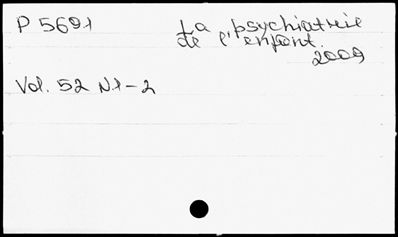 P 5691
La psychiatrie
de l'enfant.
2009
Vol. 52 N.1-2